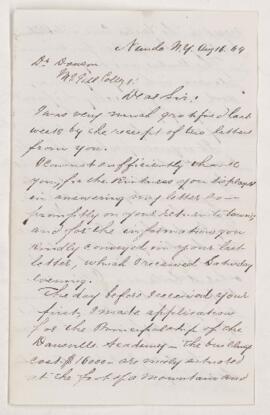 Nunda N.Y. Aug 18. 69
Dr Dawson
McGill College
Dear Sir:
I was very much gratified last
week by the receipt of two letters
from you.
I cannot sufficiently thank
you for the kindness you displayed
in answering my letter so
promptly on your return to
and for the information you
kindly conveyed in your last
letter, which I received Saturday
Evening.
The day before I received your
first, I made application
for the Principalship of the
Dansville Academy — The building
cost $16000 — are nicely situated
at the foot of a mountain and